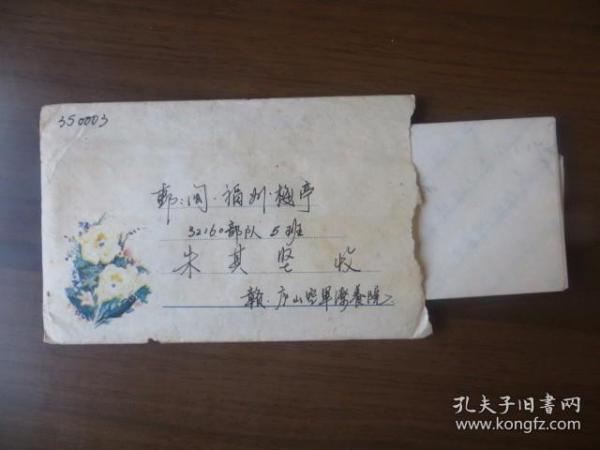 350003
郵:闽·福州·梅亭
32160部队5班
朱其坚 收
赣·庐山空军疗养院
孔夫子旧书网
www.kongfz.com